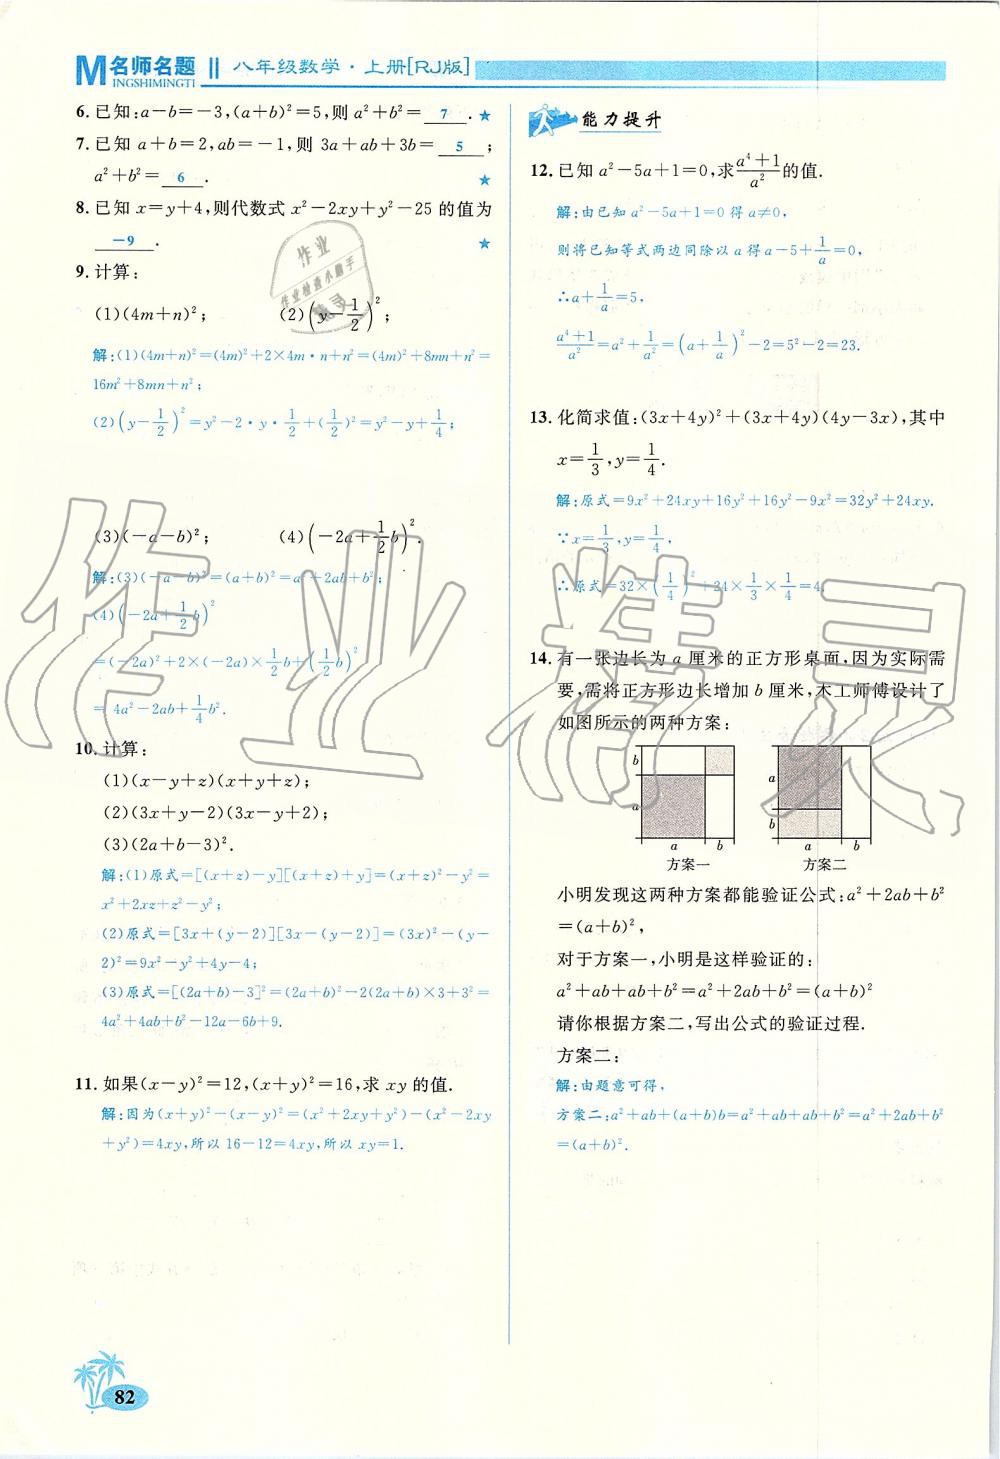 M名师名题 八年级数学·上册[RJ版]
INGSHIMINGTI
6. 已知:a-b=-3,(a+b)²=5,则 a²+b²= 7 .★
7. 已知 a+b=2,ab=-1,则 3a+ab+3b= 5 ;
a²+b²= 6 . ★
8. 已知 x=y+4,则代数式 x²-2xy+y²-25 的值为
-9 . ★
9. 计算:
(1)(4m+n)²; (2)(y-1/2)²;
解:(1)(4m+n)²=(4m)²+2×4m·n+n²=(4m)²+8mn+n²=
16m²+8mn+n²;
(2)(y-1/2)²=y²-2·y·1/2+(1/2)²=y²-y+1/4;
(3)(-a-b)²; (4)(-2a+1/2b)².
解:(3)(-a-b)²=(a+b)²=a²+2ab+b²;
(4)(-2a+1/2b)²
=(-2a)²+2×(-2a)×1/2b+(1/2b)²
=4a²-2ab+1/4b².
10. 计算:
(1)(x-y+z)(x+y+z);
(2)(3x+y-2)(3x-y+2);
(3)(2a+b-3)².
解:(1)原式=[(x+z)-y][(x+z)+y]=(x+z)²-y²=
x²+2xz+z²-y²;
(2)原式=[3x+(y-2)][3x-(y-2)]=(3x)²-(y-
2)²=9x²-y²+4y-4;
(3)原式=[(2a+b)-3]²=(2a+b)²-2(2a+b)×3+3²=
4a²+4ab+b²-12a-6b+9.
11. 如果(x-y)²=12,(x+y)²=16,求 xy 的值.
解:因为(x+y)²-(x-y)²=(x²+2xy+y²)-(x²-2xy
+y²)=4xy,所以 16-12=4xy,所以 xy=1.
能力提升
12. 已知 a²-5a+1=0,求(a⁴+1)/a²的值.
解:由已知 a²-5a+1=0 得 a≠0,
则将已知等式两边同除以 a 得 a-5+1/a=0,
∴a+1/a=5,
(a⁴+1)/a²=a²+1/a²=(a+1/a)²-2=5²-2=23.
13. 化简求值:(3x+4y)²+(3x+4y)(4y-3x),其中
x=1/3,y=1/4.
解:原式=9x²+24xy+16y²+16y²-9x²=32y²+24xy.
∵x=1/3,y=1/4,
∴原式=32×(1/4)²+24×1/3×1/4=4.
14. 有一张边长为 a 厘米的正方形桌面,因为实际需
要,需将正方形边长增加 b 厘米,木工师傅设计了
如图所示的两种方案:
b
a
a b
方案一
a
b
a b
方案二
小明发现这两种方案都能验证公式:a²+2ab+b²
=(a+b)²,
对于方案一,小明是这样验证的:
a²+ab+ab+b²=a²+2ab+b²=(a+b)²
请你根据方案二,写出公式的验证过程.
方案二:
解:由题意可得,
方案二:a²+ab+(a+b)b=a²+ab+ab+b²=a²+2ab+b²
=(a+b)².
82
作业
作业检查小助手
作业精灵